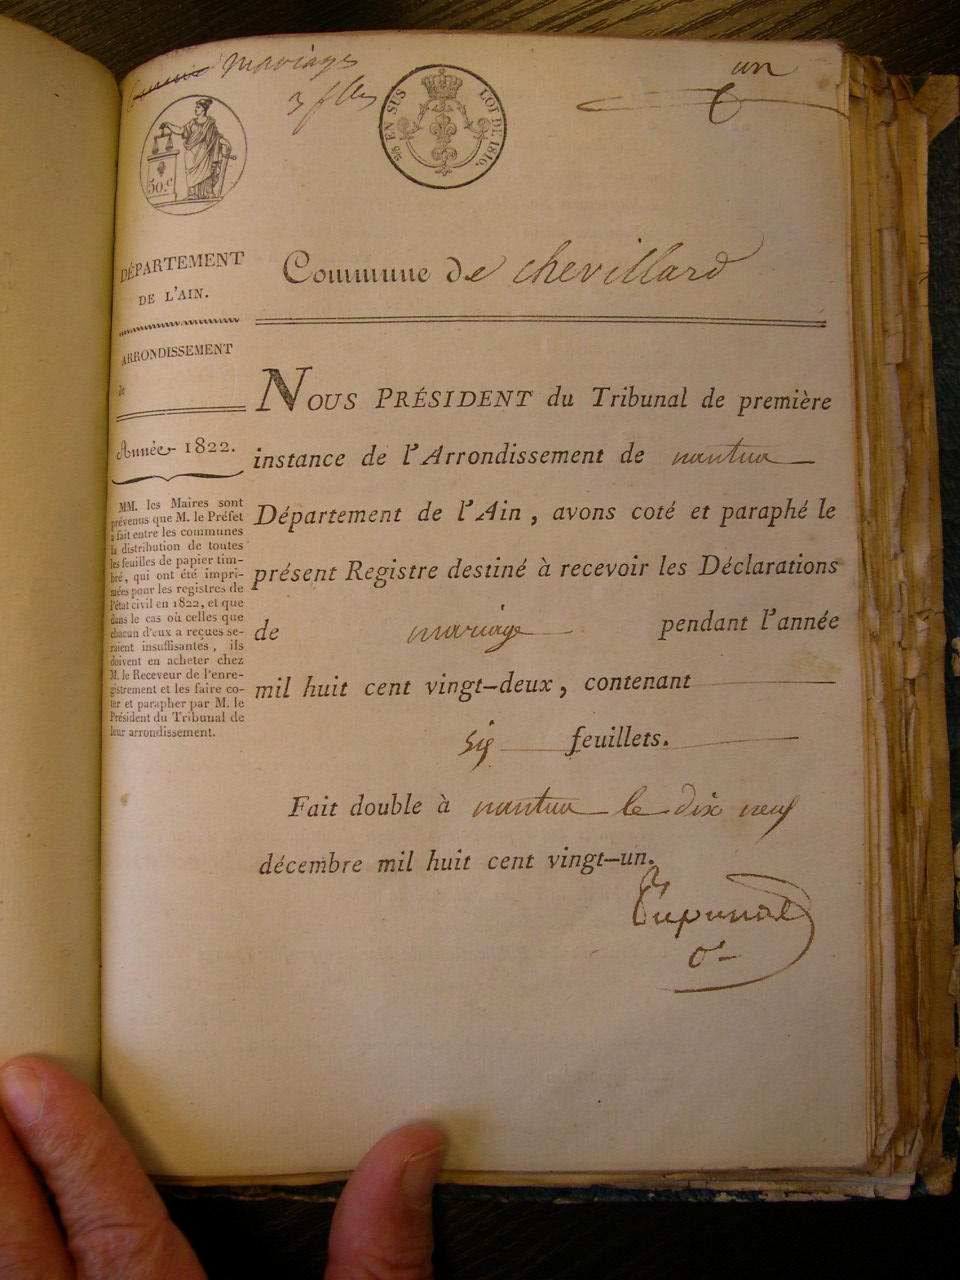 mariage
3 flles
un
50.c
5/5 EN SUS LOI DE 1816.
DÉPARTEMENT
DE L'AIN.
Commune de chevillard
ARRONDISSEMENT
de
Année 1822.
MM. les Maires sont
prévenus que M. le Préfet
a fait entre les communes
la distribution de toutes
les feuilles de papier tim-
bré, qui ont été impri-
mées pour les registres de
l'état civil en 1822, et que
dans le cas où celles que
chacun d'eux a reçues se-
raient insuffisantes, ils
doivent en acheter chez
M. le Receveur de l'enre-
gistrement et les faire co-
ter et parapher par M. le
Président du Tribunal de
leur arrondissement.
NOUS PRÉSIDENT du Tribunal de première
instance de l'Arrondissement de nantua
Département de l'Ain, avons coté et paraphé le
présent Registre destiné à recevoir les Déclarations
de mariage pendant l'année
mil huit cent vingt-deux, contenant
six feuillets.
Fait double à nantua le dix neuf
décembre mil huit cent vingt-un.